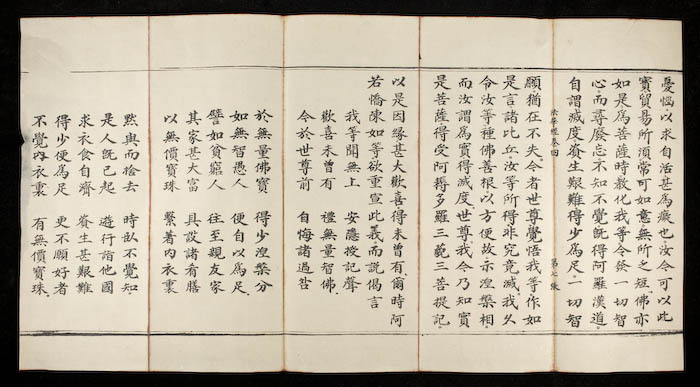 憂惱以求自活甚為癡也汝今可以此
寶貿易所須常可如意無所乏短佛亦
如是為菩薩時教化我等令發一切智
心而尋廢忘不知不覺既得阿羅漢道
自謂滅度資生艱難得少為足一切智
法華經卷四 第七張
願猶在不失今者世尊覺悟我等作如
是言諸比丘汝等所得非究竟滅我久
令汝等種佛善根以方便故示涅槃相
而汝謂為實得滅度世尊我今乃知實
是菩薩得受阿耨多羅三藐三菩提記
以是因緣甚大歡喜得未曾有爾時阿
若憍陳如等欲重宣此義而說偈言
我等聞無上 安隱授記聲
歡喜未曾有 禮無量智佛
今於世尊前 自悔諸過咎
於無量佛寶 得少涅槃分
如無智愚人 便自以為足
譬如貧窮人 往至親友家
其家甚大富 具設諸肴膳
以無價寶珠 繫著內衣裏
默與而捨去 時臥不覺知
是人既已起 遊行詣他國
求衣食自濟 資生甚艱難
得少便為足 更不願好者
不覺內衣裏 有無價寶珠